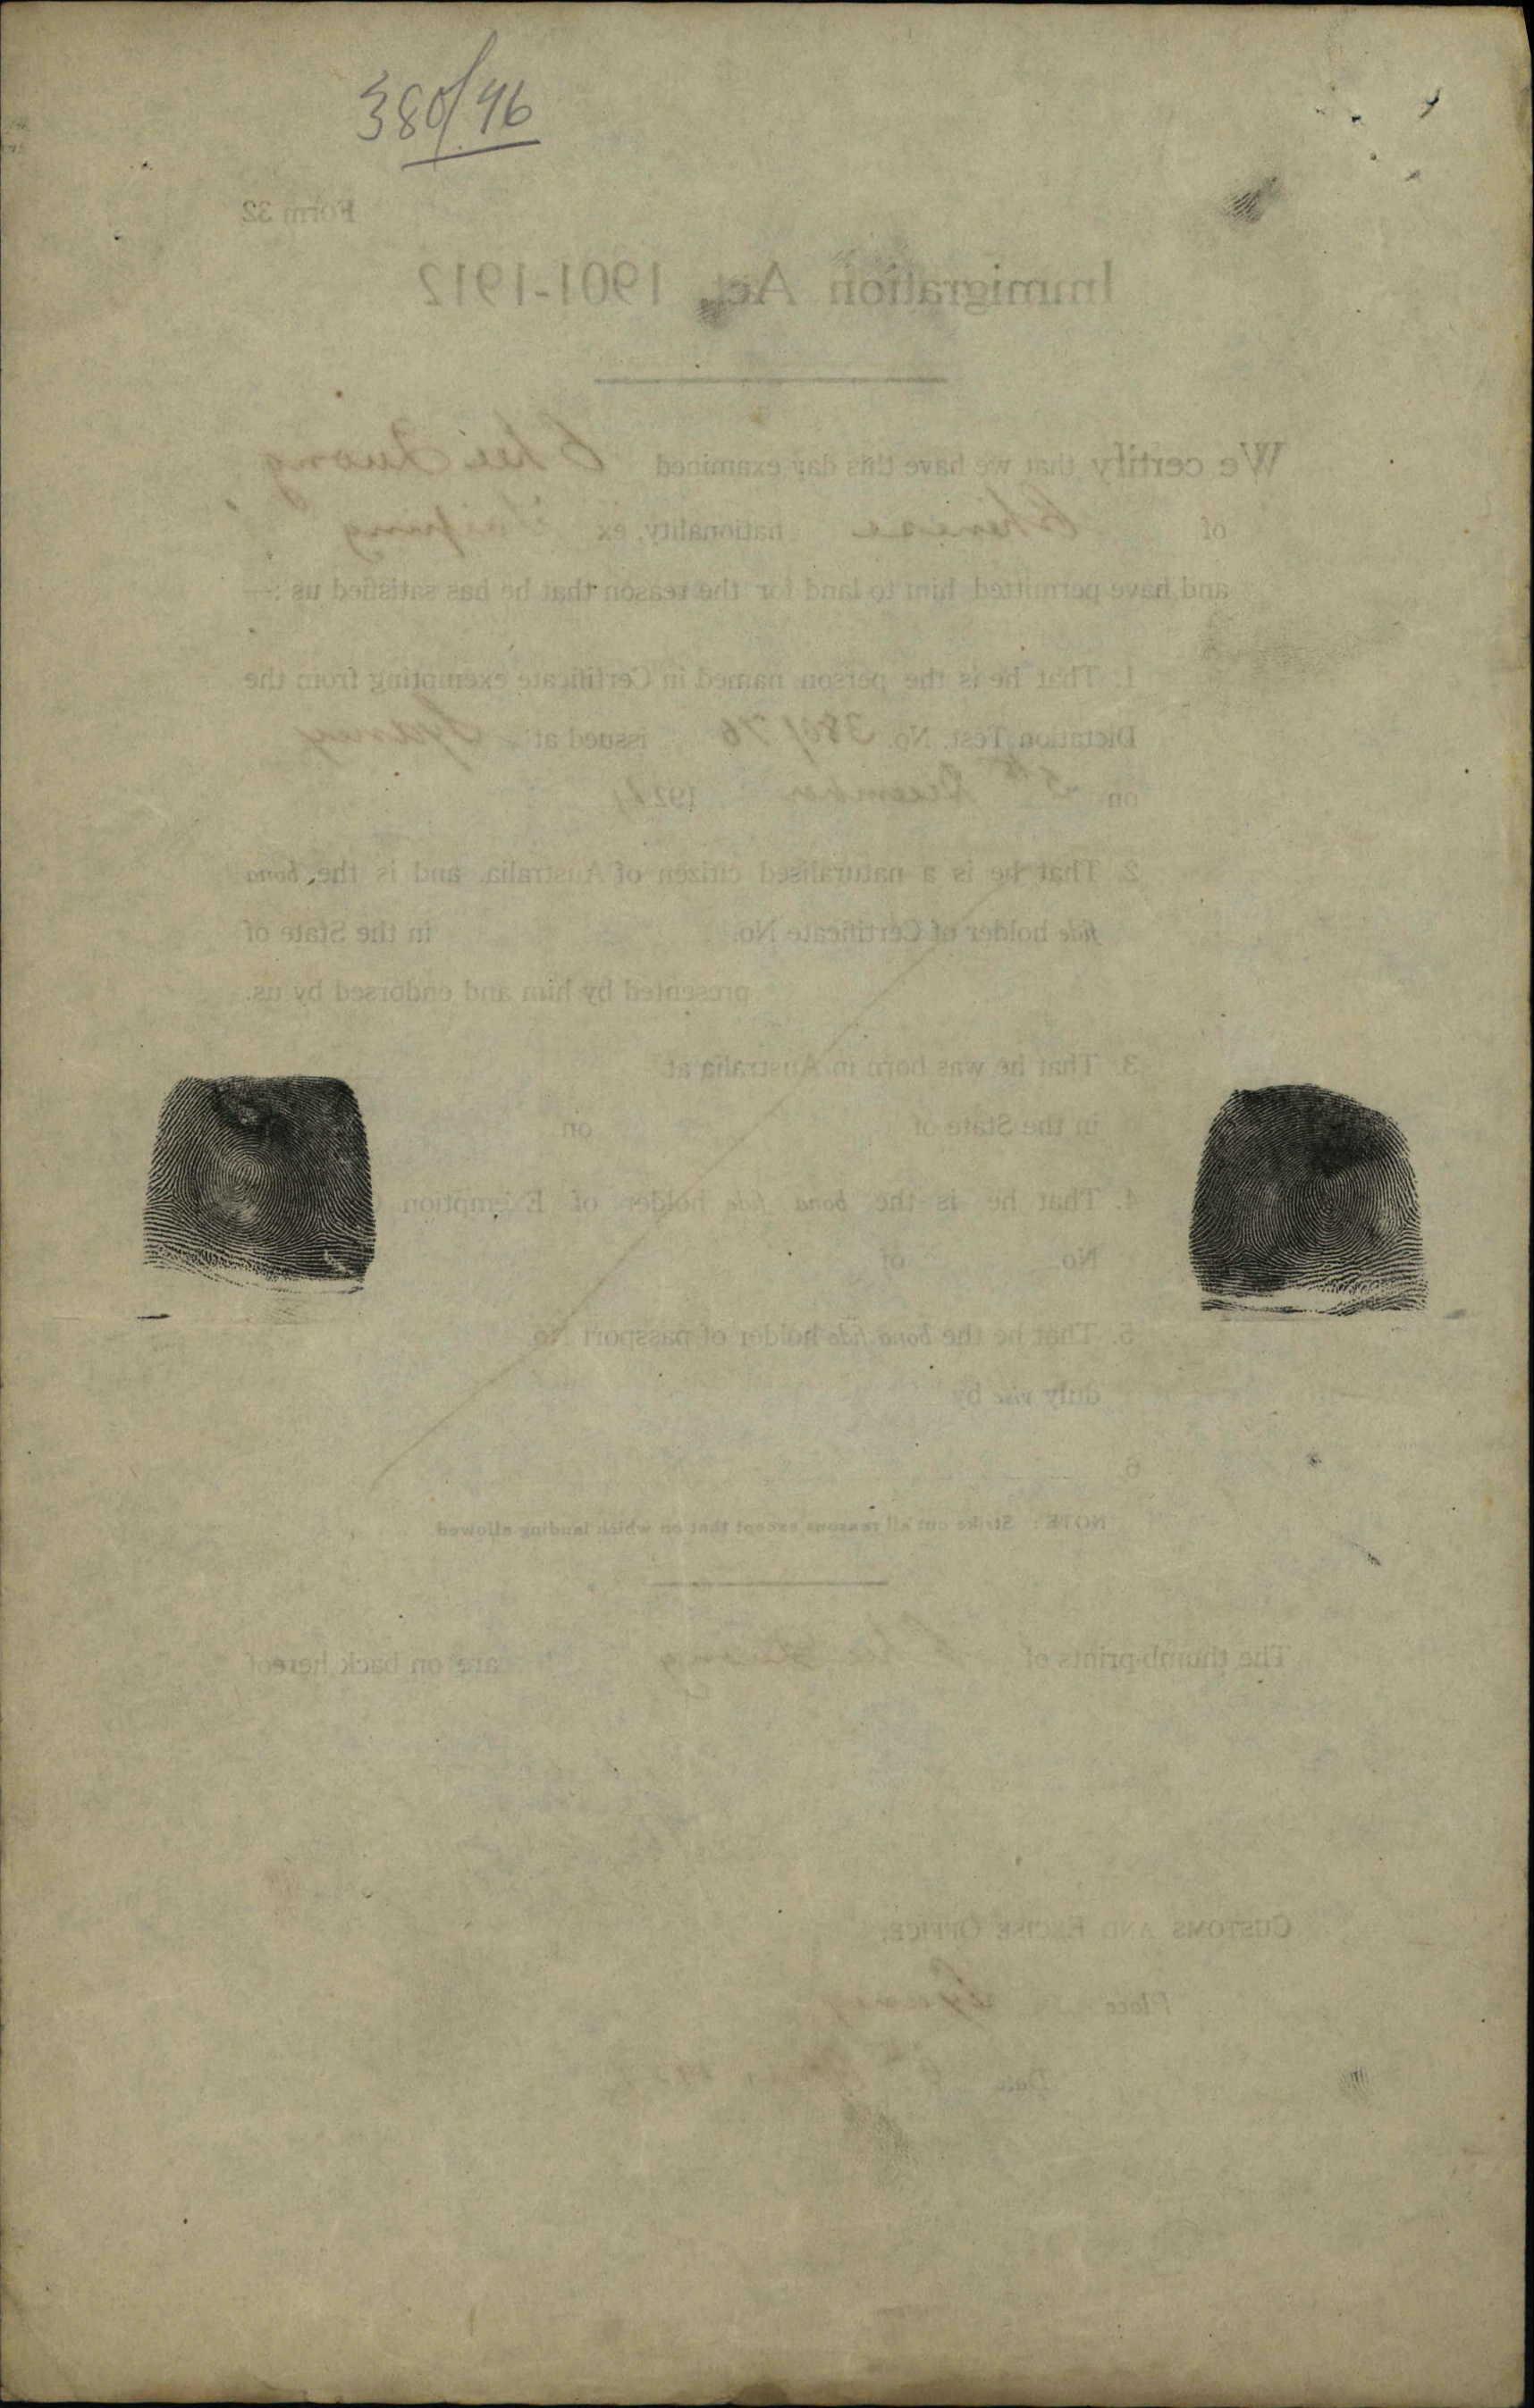 380/46
Form 32
Immigration Act, 1901-1912
We certify that we have this day examined Chee Quong
of Chinese nationality, ex Taiping
and have permitted him to land for the reason that he has satisfied us :—
1. That he is the person named in Certificate exempting from the
Dictation Test, No. 380/46 issued at Sydney
on 5th December 1924
2. That he is a naturalised citizen of Australia, and is the bona
fide holder of Certificate No. in the State of
presented by him and endorsed by us.
3. That he was born in Australia at
in the State of on
4. That he is the bona fide holder of Exemption
No. of
5. That he the bona fide holder of passport No
duly visé by
6
NOTE : Strike out all reasons except that on which landing allowed
The thumb-prints of Chee Quong are on back hereof
CUSTOMS AND EXCISE OFFICE,
Place Sydney
Date